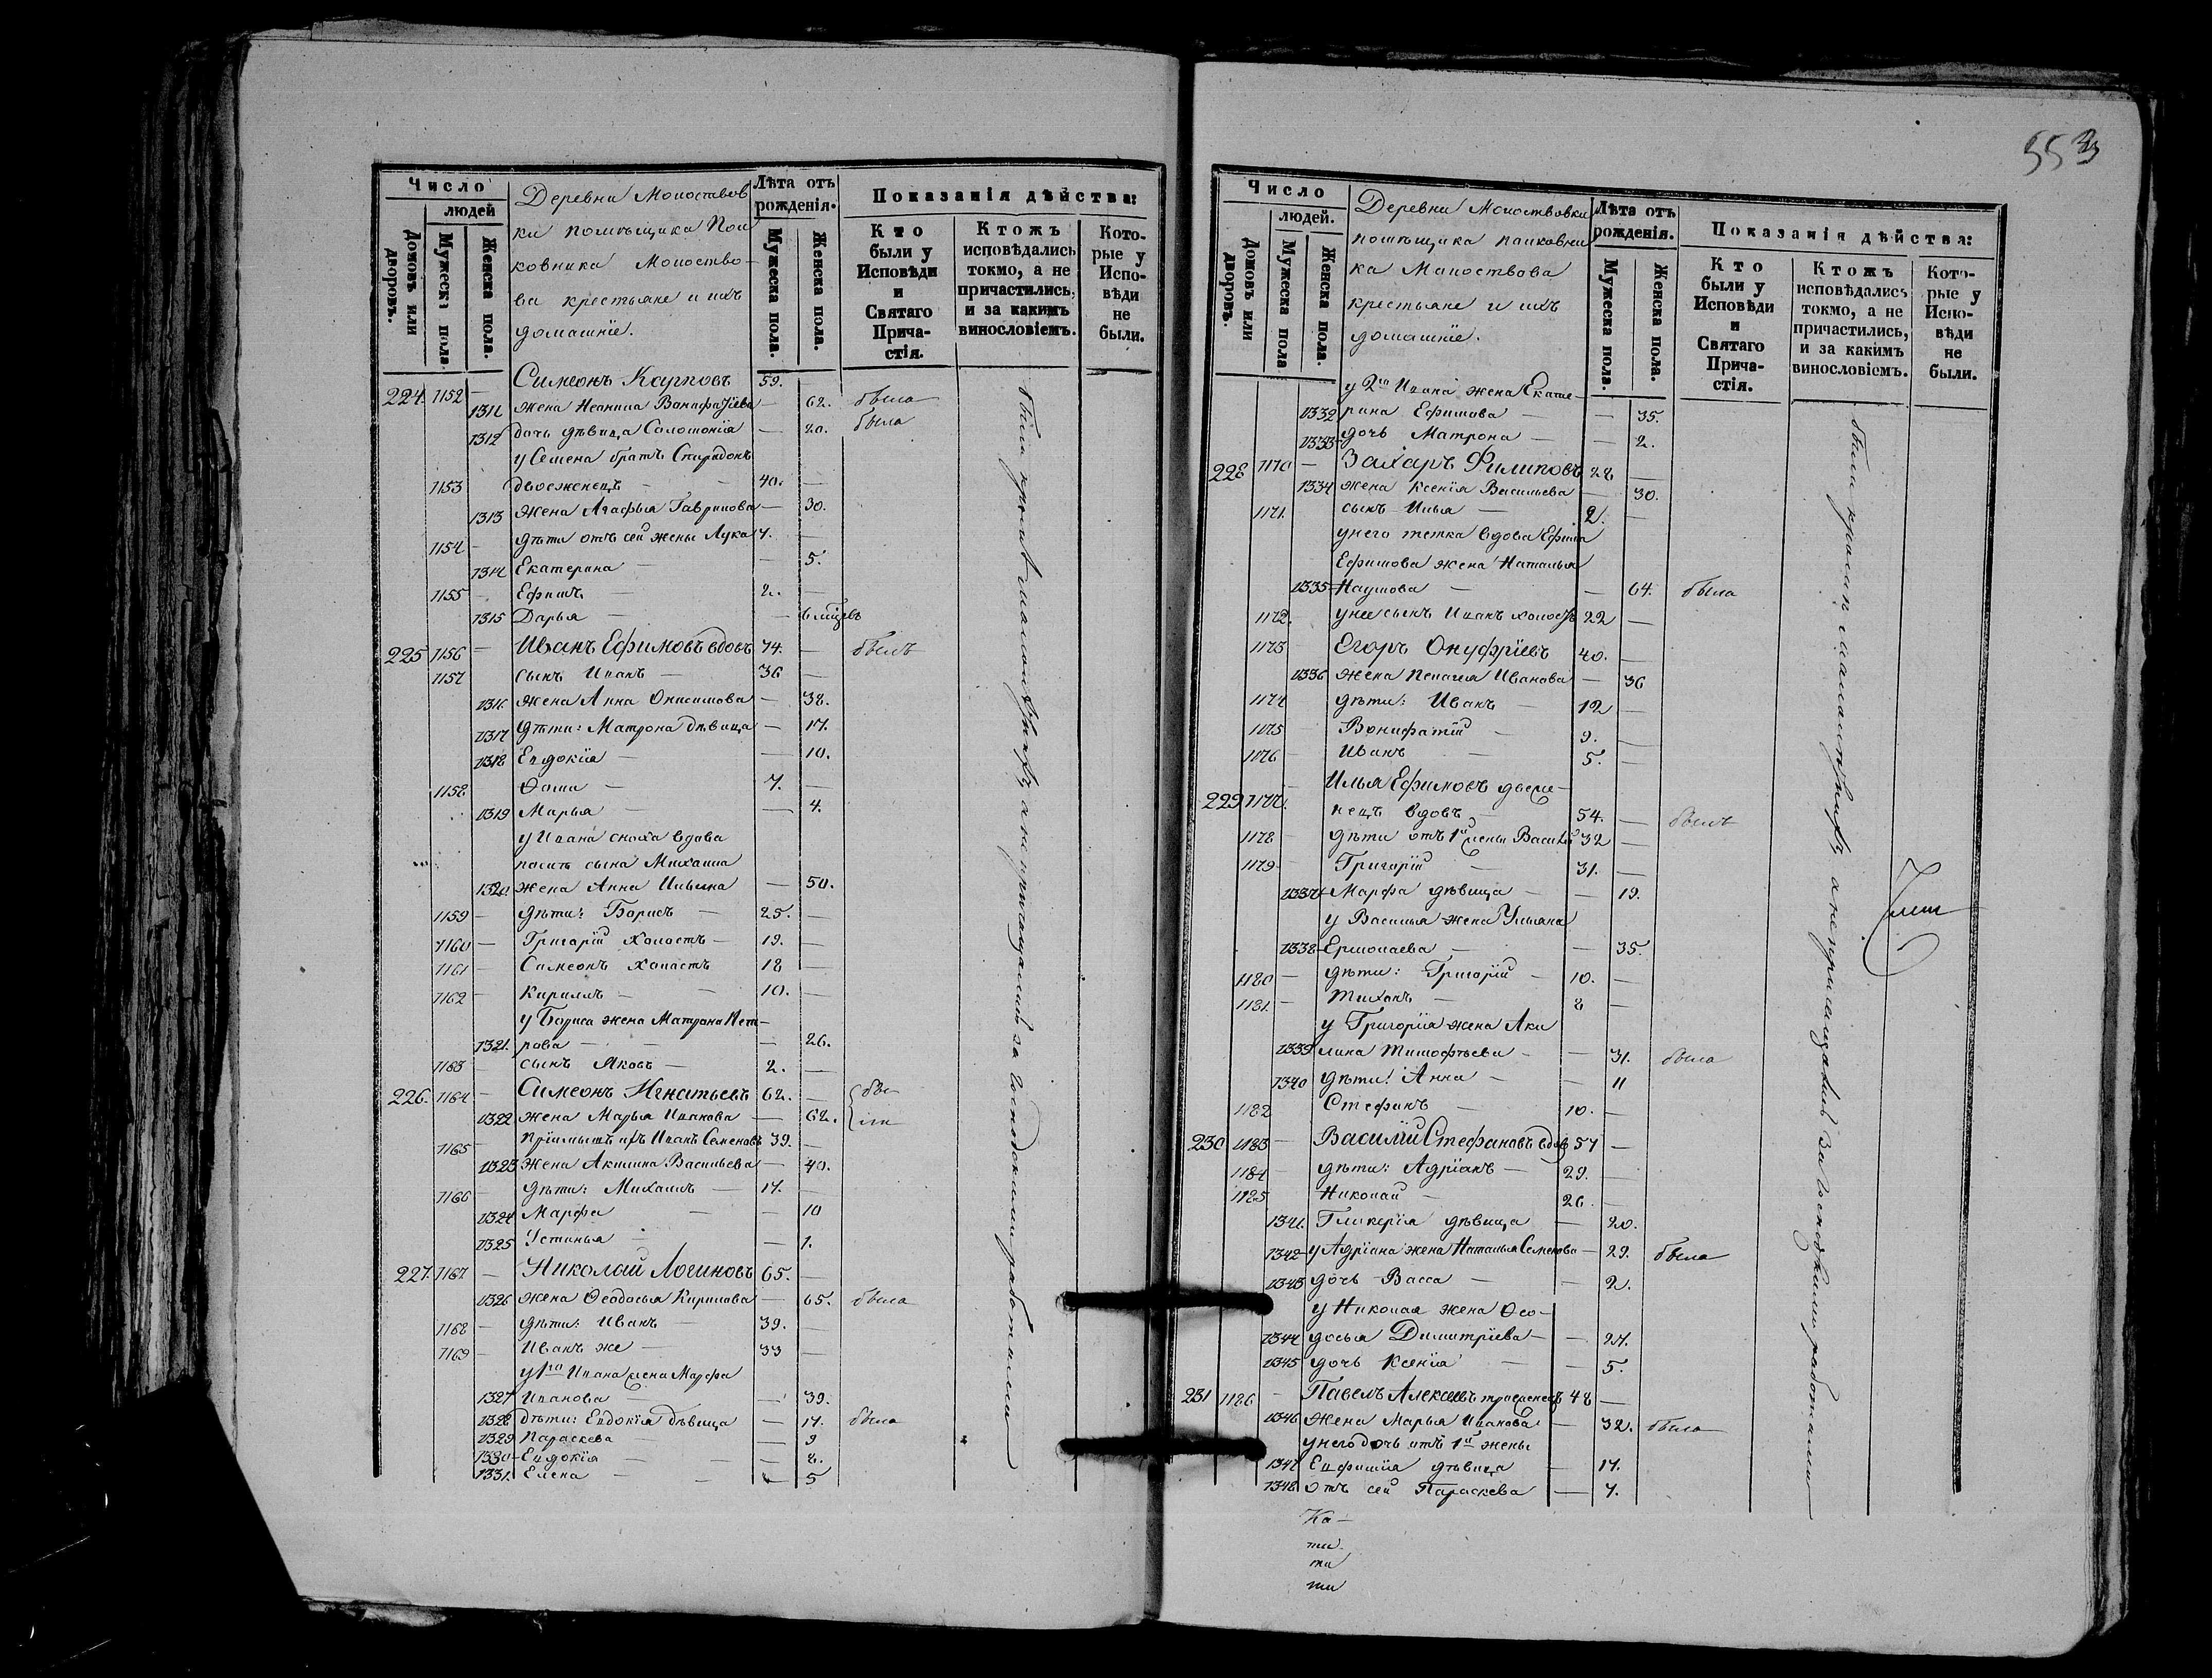 553
Число
людей
Домовъ или дворовъ.
Мужеска пола.
Женска пола.
Деревни Молоствов
ки помѣщика Пол
ковника Молоство-
ва крестьяне и ихъ
домашніе.
Лѣта отъ рожденія.
Мужеска пола.
Женска пола.
Показанія дѣйства:
Кто были у Исповѣди и Святаго Причастія.
Ктожъ исповѣдались токмо, а не причастились, и за какимъ винословіемъ.
Которые у Исповѣди не были.
224. 1152 — Симеонъ Карповъ 59.
1311 жена Неанила Вонифатіева — 62. была
1312 дочь дѣвица Соломонія — 20. была
у Семена братъ Спиридонъ
1153 двоеженецъ — 40. —
1313 жена Агафья Гаврилова — 30.
1154 — дѣти отъ сей жены Лука 7. —
1314 Екатерина — — 5.
1155 — Ефимъ — 2. —
1315 Дарья — — 6 мѣсцевъ
225 1156 — Иванъ Ефимовъ вдовъ 74. — былъ
1157 сынъ Иванъ — 36 —
1316 жена Анна Онисимова — 38.
1317 дѣти: Матрона дѣвица — 17.
1318 Евдокія — — 10.
1158 Ѳома — 7. —
1319 Марья — — 4.
у Ивана сноха вдова
послѣ сына Михаила
1320 жена Анна Ильина — 50.
1159 — дѣти: Борисъ — 25. —
1160 — Григорій холостъ — 19. —
1161 — Симеонъ холостъ 18 —
1162 — Кириллъ — 10. —
у Бориса жена Матрона Пет-
1321. рова — — 26.
1163 — сынъ Яковъ — 2. —
226. 1164 — Симеонъ Игнатьевъ 62. — бы-
1322 жена Марья Иванова — 62. ли
1165 — пріимышъ ихъ Иванъ Семеновъ 39. —
1323 жена Акилина Васильева — 40.
1166 — дѣти: Михаилъ — 17. —
1324 Марфа — — 10
1325 Устинья — — 1.
227. 1167 — Николай Логиновъ 65. —
1326 жена Ѳеодосья Кирилова — 65. была
1168 — дѣти: Иванъ — 39. —
1169 — Иванъ же — 33 —
у 1го Ивана жена Марфа
1327 Иванова — 39.
1328 дѣти: Евдокія дѣвица — 17. была
1329 Параскева — — 9
1330 Евдокія — — 8.
1331. Елена — — 5
были кромѣ малолѣтнихъ а не причащались за Господскими работами
Число
людей.
Домовъ или дворовъ.
Мужеска пола
Женска пола.
Деревни Молоствовки
помѣщика полковни
ка Молоствова
крестьяне и ихъ
домашніе.
Лѣта отъ рожденія.
Мужеска пола.
Женска пола.
Показанія дѣйства:
Кто были у Исповѣди и Святаго Причастія.
Ктожъ исповѣдались токмо, а не причастились, и за какимъ винословіемъ.
Которые у Исповѣди не были.
у 2го Ивана жена Екате-
1332 рина Ефимова — — 35.
1333 дочь Матрона — — 2.
228 1170 — Захаръ Филиповъ 28 —
1334 жена Ксенія Васильева — 30.
1171. сынъ Илья — 2. —
у него тетка вдова Ефима
Ефимова жена Наталья
1335 Наумова — — 64. была
1172. у нее сынъ Иванъ холостъ 22 —
1173 Егоръ Онуфріевъ 40. —
1336 жена Пелагея Иванова — 36
1174 дѣти: Иванъ — 12 —
1175 Вонифатій — 9. —
1176 Иванъ — 5. —
Илья Ефимовъ двоже-
229 1177. нецъ вдовъ — 54. — былъ
1178 — дѣти отъ 1й жены Василій 32 —
1179 — Григорій — 31. —
1337 Марфа дѣвица — — 19.
у Василья жена Ульяна
1338 Ермолаева — — 35.
1180 — дѣти: Григорій — 10. —
1181. — Тихонъ — 8 —
у Григорія жена Аки
1339 лина Тимофѣева — — 31. была
1340 дѣти: Анна — — 11
1182 Стефанъ — 10. —
230 1183 — Василій Стефановъ вдовъ 57 —
1184 — дѣти: Адріанъ — 29. —
1185 Николай — 26. —
1341. Гликерія дѣвица — 20.
1342 у Адріана жена Наталья Семенова — 29. была
1343 дочь Васса — — 2.
у Николая жена Ѳео-
1344 досья Димитріева — — 27.
1345 дочь Ксенія — — 5.
231 1186 — Павелъ Алексеевъ троеженецъ 48 —
1346 жена Марья Иванова — 32. была
у него дочь отъ 1й жены
1347 Евфимія дѣвица — 17.
1348 отъ сей Параскева — 7.
были кромѣ малолѣтнихъ а не причащались за Господскими работами